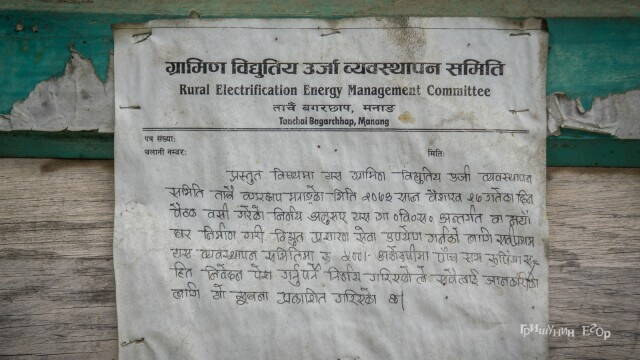 ग्रामिण विद्युतिय उर्जा व्यवस्थापन समिति
Rural Electrification Energy Management Committee
ताचै बगरछाप, मनाङ
Tanchai Bagarchhap, Manang
पत्र संख्या:
चलानी नम्बर: मिति:
प्रस्तुत विषयमा यस ग्रामिण विद्युतिय उर्जा व्यवस्थापन
समिति ताचै बगरछाप मनाङको मिति २०७३ साल वैशाख २७ गतेका दिन
बैठक बसी गरेको निर्णय अनुसार यस गा०वि०स० अन्तर्गत नयाँ
घर निर्माण गरी विद्युत प्रशारण सेवा उपयोग गर्नको लागि सर्वप्रथम
यस व्यवस्थापन समितिमा रु ५००।- पाँच सय
हित निवेदन पेश गर्नुपर्ने निर्णय गरिएको ले सबैलाई जानकारीको
लागि यो सूचना प्रकाशित गरिएको छ।
ГРИШУНИН ЕГОР